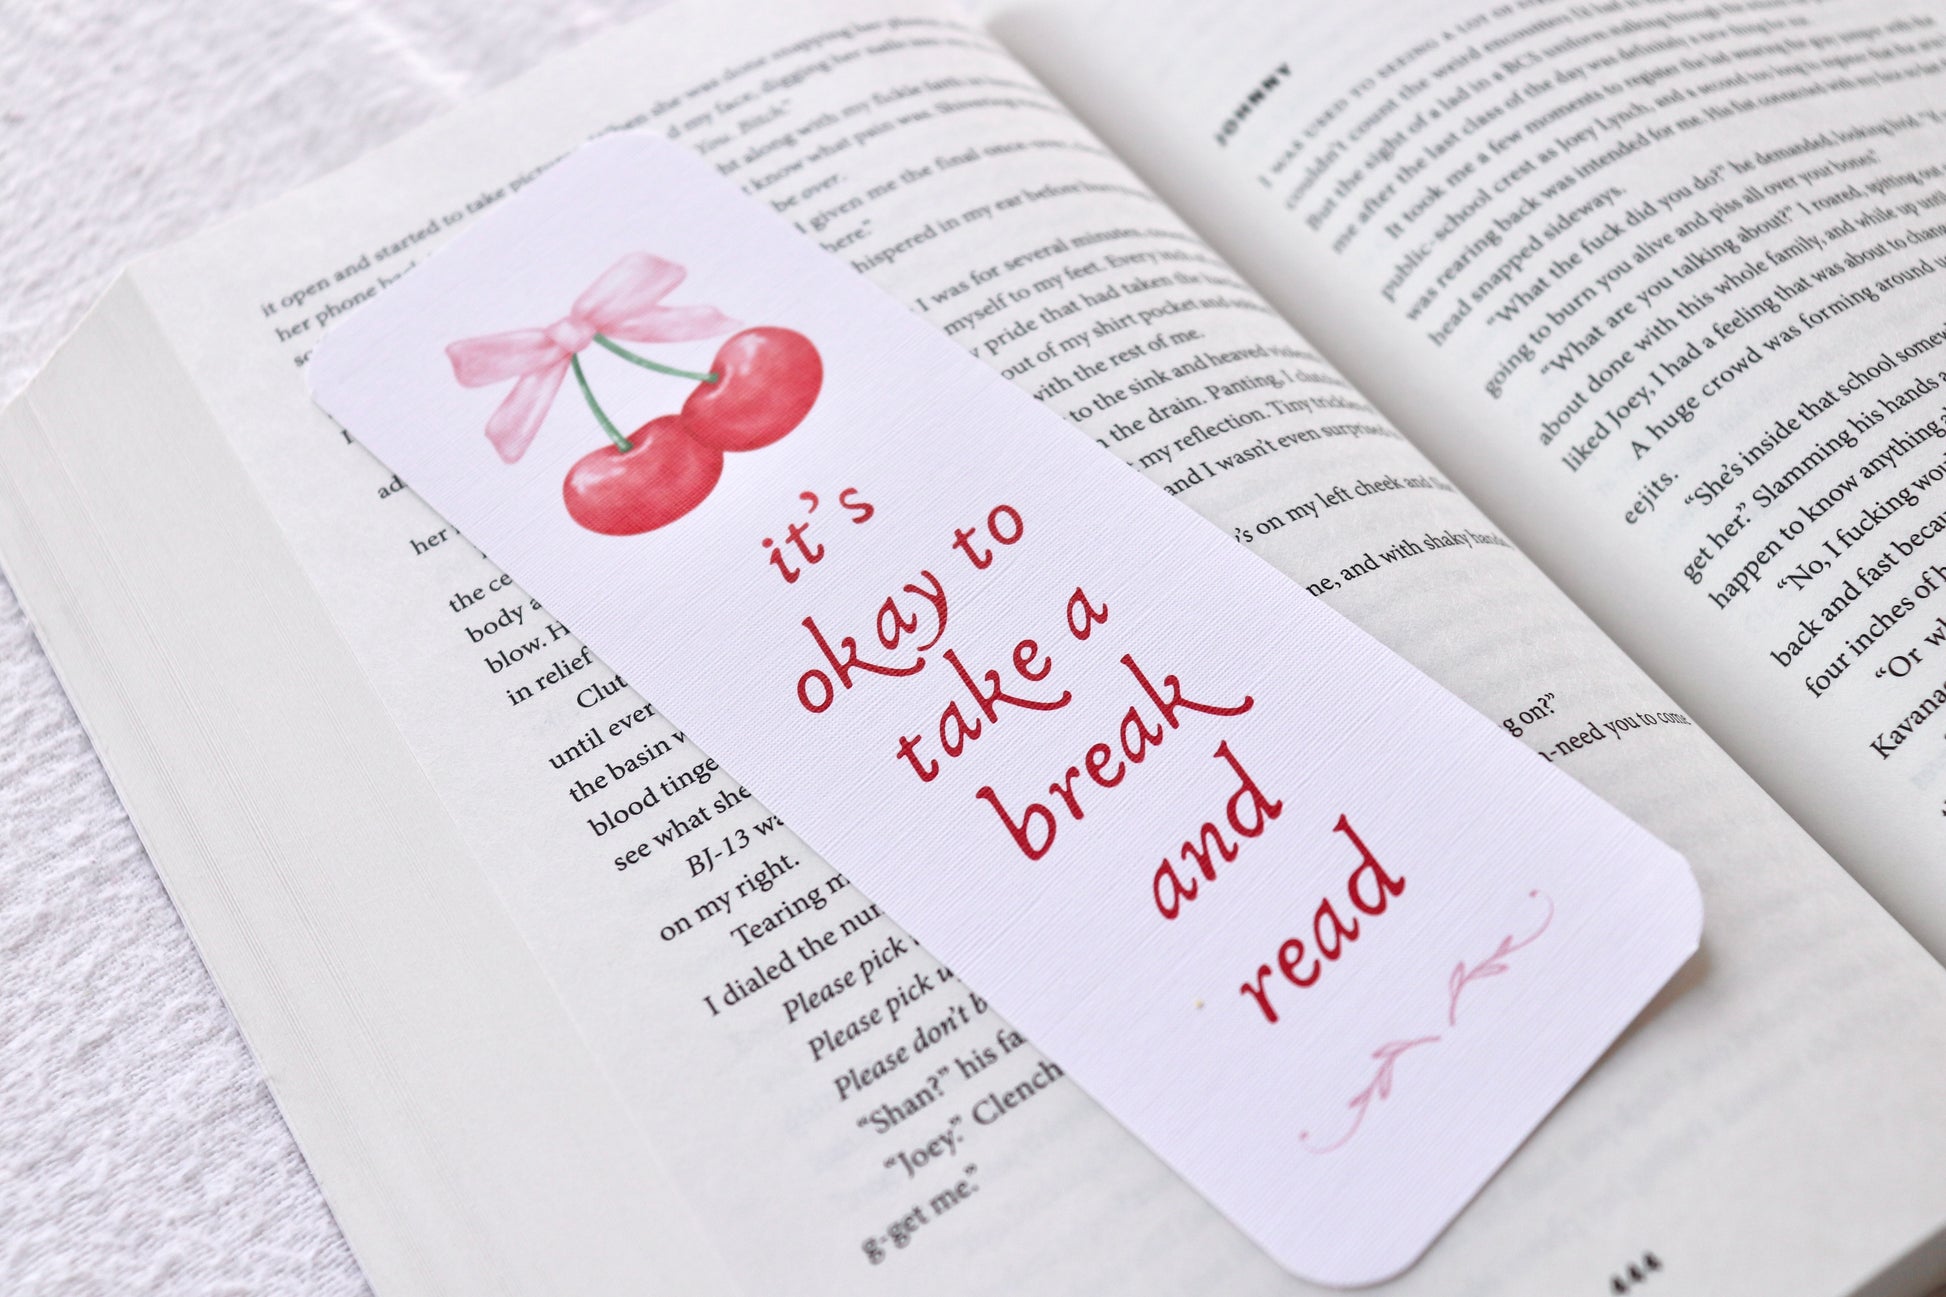 it's
okay to
take a
break
and
read
it open and started to take
her phone
her
the ce
body a
blow. H
in relief
Clut
until ever
the basin w
blood tinge
see what she
BJ-13 wa
on my right.
Tearing m
I dialed the nu
Please pick
Please pick u
Please don't b
"Shan?" his fa
"Joey." Clench
g-get me."
she was done snapping her
d my face, digging her nails
You. Bitch."
ht along with my fickle faith
know what pain was. Shivering
be over.
given me the final once-over,
here."
hispered in my ear before
I was for several minutes,
myself to my feet. Every inch
pride that had taken the
out of my shirt pocket and
with the rest of me.
to the sink and heaved
the drain. Panting, I
my reflection. Tiny
and I wasn't even surprised
's on my left cheek and
ne, and with shaky hands,
g on?"
n-need you to come
JOHNNY
I WAS USED TO SEEING A LOT OF
couldn't count the weird encounters I'd had
But the sight of a lad in a BCS uniform stalking through the
me after the last class of the day was definitely a new thing for me.
It took me a few moments to register the lad wearing the gray jumper with the
public-school crest as Joey Lynch, and a second too long to register that the
was rearing back was intended for me. His fist connected with my face so
head snapped sideways.
"What the fuck did you do?" he demanded, looking livid.
going to burn you alive and piss all over your bones."
"What are you talking about?" I roared, spitting out
about done with this whole family, and while up until
liked Joey, I had a feeling that was about to change
A huge crowd was forming around
eejits.
"She's inside that school
get her." Slamming his hands
happen to know anything
"No, I fucking
back and fast
four inches of
"Or
Kavana
444